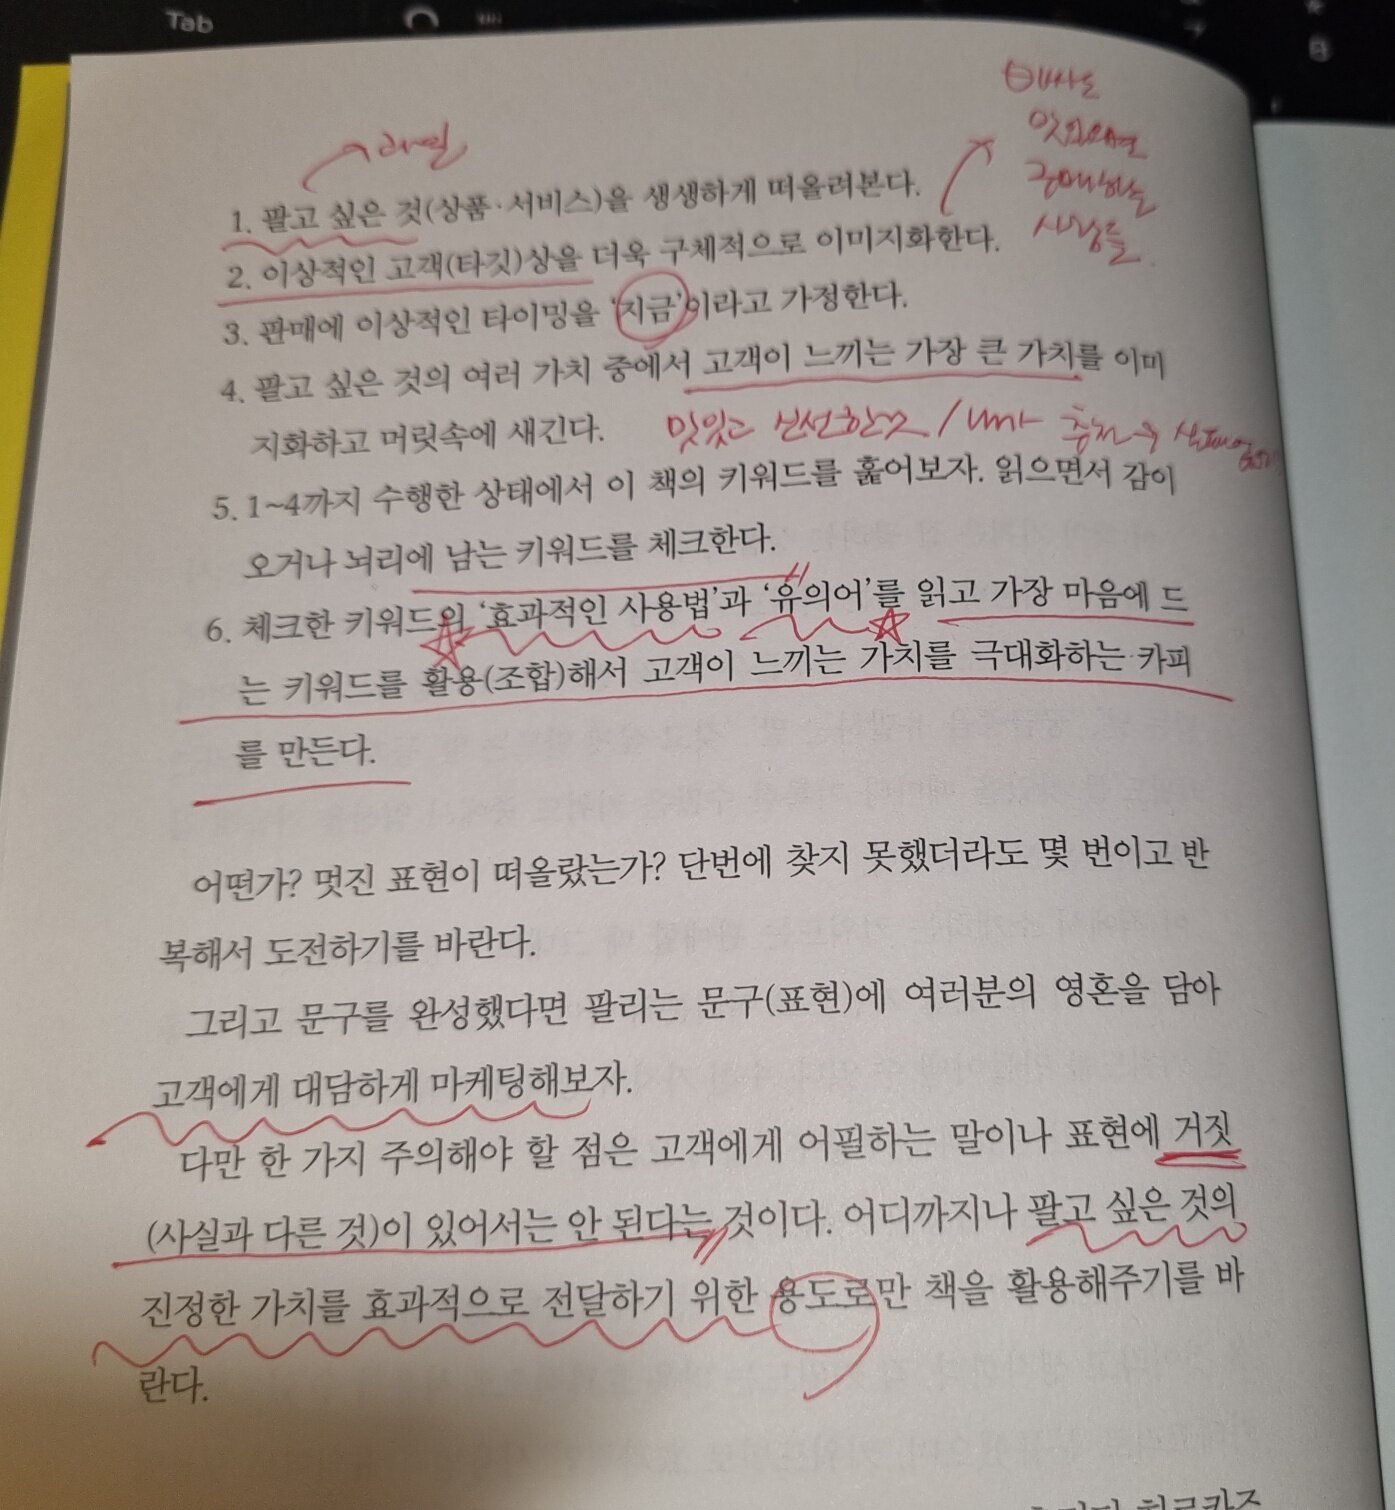 Tab
과일
비싸도
맛있으면
구매하는
사람들
1. 팔고 싶은 것(상품·서비스)을 생생하게 떠올려본다.
2. 이상적인 고객(타깃)상을 더욱 구체적으로 이미지화한다.
3. 판매에 이상적인 타이밍을 ‘지금’이라고 가정한다.
4. 팔고 싶은 것의 여러 가치 중에서 고객이 느끼는 가장 큰 가치를 이미
지화하고 머릿속에 새긴다.
맛있고 신선한것 /
5. 1~4까지 수행한 상태에서 이 책의 키워드를 훑어보자. 읽으면서 감이
오거나 뇌리에 남는 키워드를 체크한다.
6. 체크한 키워드의 ‘효과적인 사용법’과 ‘유의어’를 읽고 가장 마음에 드
는 키워드를 활용(조합)해서 고객이 느끼는 가치를 극대화하는 카피
를 만든다.
어떤가? 멋진 표현이 떠올랐는가? 단번에 찾지 못했더라도 몇 번이고 반
복해서 도전하기를 바란다.
그리고 문구를 완성했다면 팔리는 문구(표현)에 여러분의 영혼을 담아
고객에게 대담하게 마케팅해보자.
다만 한 가지 주의해야 할 점은 고객에게 어필하는 말이나 표현에 거짓
(사실과 다른 것)이 있어서는 안 된다는 것이다. 어디까지나 팔고 싶은 것의
진정한 가치를 효과적으로 전달하기 위한 용도로만 책을 활용해주기를 바
란다.